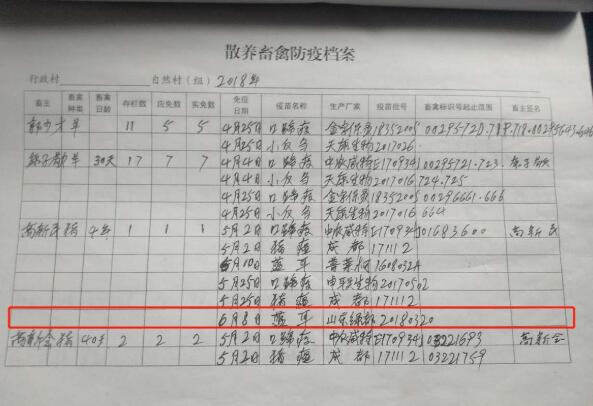 散养畜禽防疫档案
行政村 自然村（组）2018年
畜主 畜禽种类 畜禽日龄 存栏数 应免数 实免数 免疫日期 疫苗名称 生产厂家 疫苗批号 畜禽标识号起止范围 畜主签名
羊 11 5 5 4月25日 口蹄疫 18352005
4月25日 小反刍 天康生物 2017026
羊 30天 17 7 7 4月4日 口蹄疫 中农威特 00295721.723
4月4日 小反刍 天康生物 2017016 724.725
4月25日 口蹄疫 18352005 00296661.666
4月25日 小反刍 天康生物 2017016 664
高新民 猪 1 1 1 5月2日 口蹄疫 中农威特 01683600 高新民
5月2日 猪瘟 成都 171112
蓝耳 普莱柯
5月25日 口蹄疫 申联生物 20170502
5月25日 猪瘟 成都 171112
6月8日 蓝耳 山东绿都 20180320
猪 40天 2 2 2 5月2日 口蹄疫 中农威特 03221693
5月2日 猪瘟 成都 171112 03221759